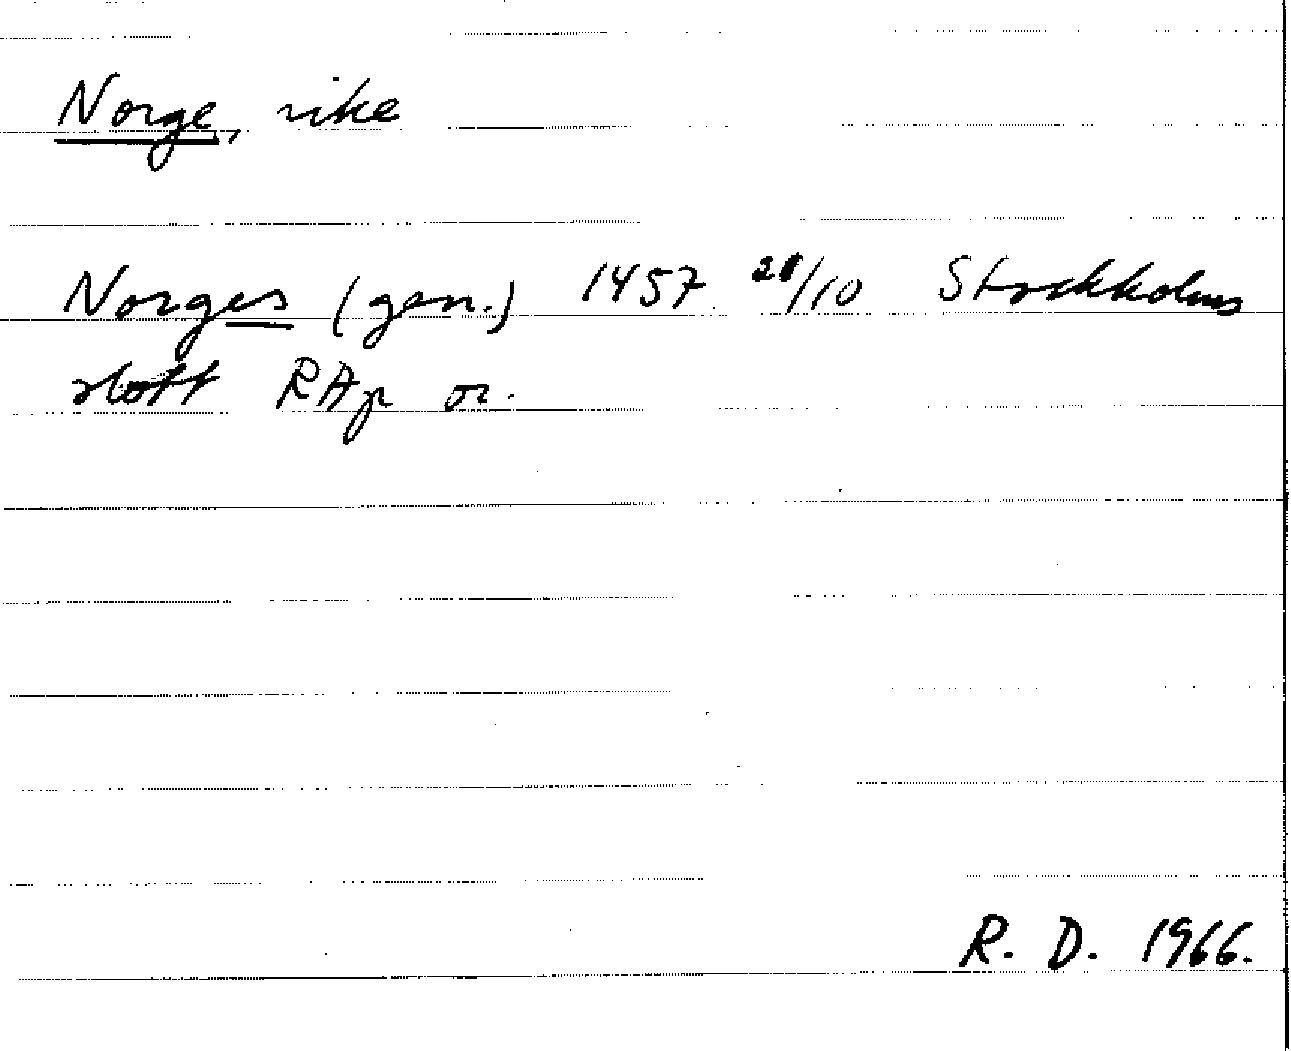 Norge, rike
Norges (gen.) 1457 28/10 Stockholms
slott RAp or.
R. D. 1966.